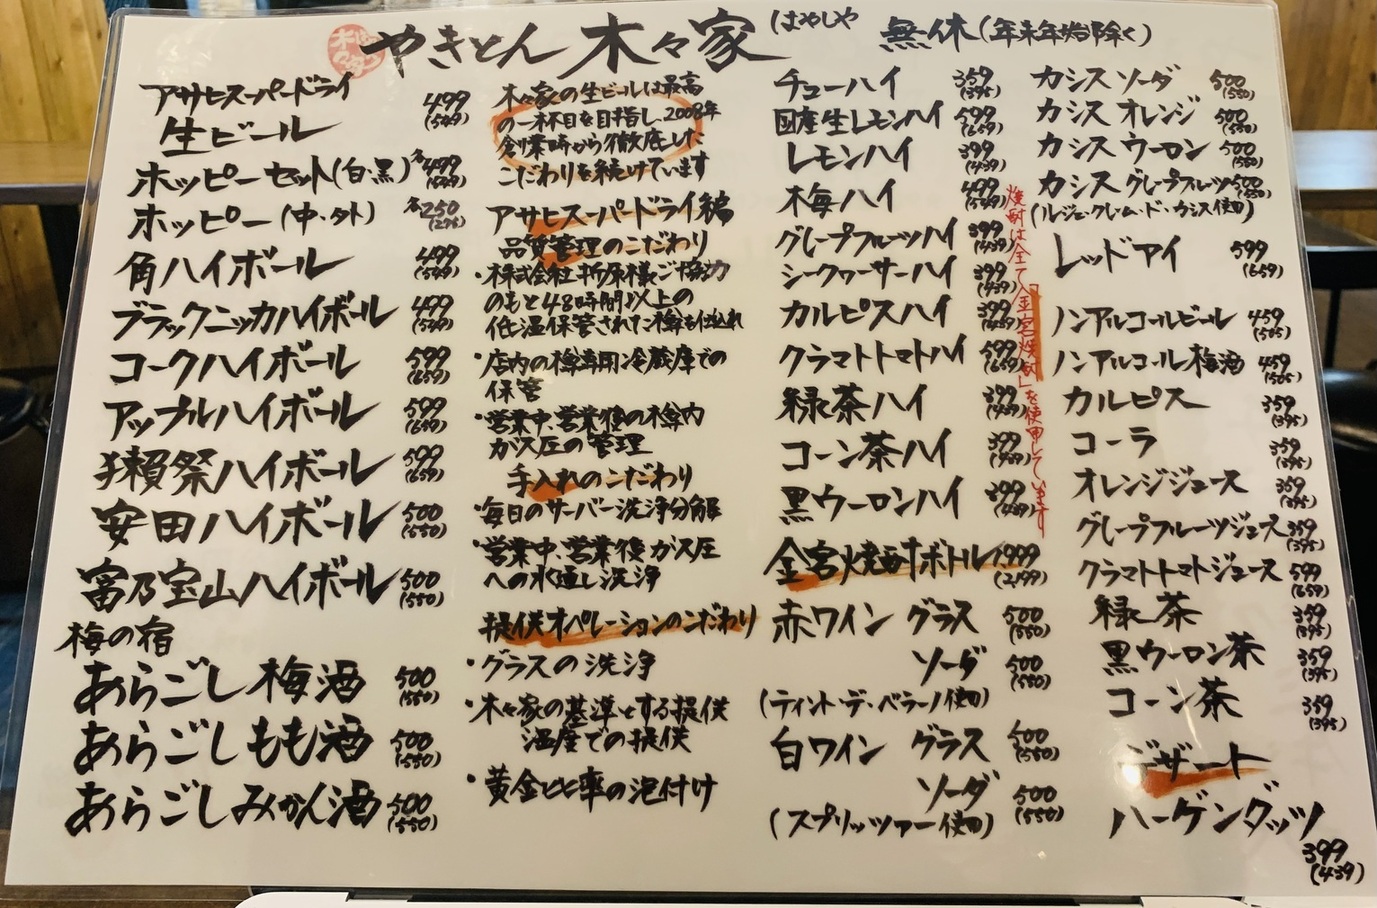 やきとん 木々家 はやしや 無休(年末年始除く)
アサヒスーパードライ
生ビール 499 (549)
ホッピーセット(白・黒) 各499 (549)
ホッピー(中・外) 各250 (275)
角ハイボール 499 (549)
ブラックニッカハイボール 499 (549)
コークハイボール 599 (659)
アップルハイボール 599 (659)
獺祭ハイボール 599 (659)
安田ハイボール 500 (550)
富乃宝山ハイボール 500 (550)
梅の宿
あらごし梅酒 500 (550)
あらごしもも酒 500 (550)
あらごしみかん酒 500 (550)
木々家の生ビールは最高
の一杯目を目指し、2008年
創業時から徹底した
こだわりを続けています
アサヒスーパードライ編
品質管理のこだわり
・株式会社折原様ご協力
のもと48時間以上の
低温保管された樽を仕入れ
・店内の樽専用冷蔵庫での
保管
・営業中、営業後の樽内
ガス圧の管理
手入れのこだわり
・毎日のサーバー洗浄分解
・営業中、営業後ガス圧
への水通し洗浄
提供オペレーションのこだわり
・グラスの洗浄
・木々家の基準とする提供
温度での提供
・黄金比率の泡付け
チューハイ 359 (395)
国産生レモンハイ 599 (659)
レモンハイ 399 (439)
梅ハイ 499 (549)
グレープフルーツハイ 399 (439)
シークヮーサーハイ 399 (439)
カルピスハイ 399 (439)
クラマトトマトハイ 599 (659)
緑茶ハイ 399 (439)
コーン茶ハイ 399 (439)
黒ウーロンハイ 399 (439)
焼酎は全て「金宮焼酎」を使用しています
金宮焼酎ボトル 1999 (2199)
赤ワイン グラス 500 (550)
ソーダ 500 (550)
(ティント・デ・ベラーノ使用)
白ワイン グラス 500 (550)
ソーダ 500 (550)
(スプリッツァー使用)
カシスソーダ 500 (550)
カシスオレンジ 500 (550)
カシスウーロン 500 (550)
カシスグレープフルーツ 500 (550)
(ルジェ・クレーム・ド・カシス使用)
レッドアイ 599 (659)
ノンアルコールビール 459 (505)
ノンアルコール梅酒 459 (505)
カルピス 359 (395)
コーラ 359 (395)
オレンジジュース 359 (395)
グレープフルーツジュース 359 (395)
クラマトトマトジュース 599 (659)
緑茶 359 (395)
黒ウーロン茶 359 (395)
コーン茶 359 (395)
デザート
ハーゲンダッツ
399 (439)